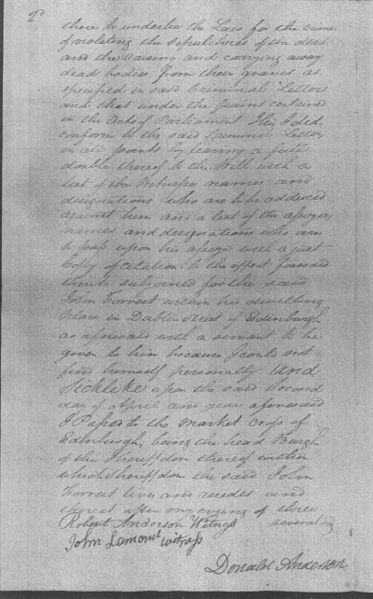 2d
there to underlie the Law for the crime
of violating the Sepulchres of the dead
and the raising and carrying away
dead bodies from their graves as
specified in said Criminal Letters
and that under the pains contained
in the Acts of Parliament This I did
conform to the said Criminal Letters
in all points by leaving a full
double thereof to the Will with a
list of the Witnesses names and
designations who are to be adduced
against him and a list of the assizers
names and designations who are
to pass upon his assize with a just
Copy of Citation to the effect foresaid
thereto subjoined for the said
John Forrest within his dwelling
place in Dublin Street of Edinburgh
as aforesaid with a servant to be
given to him because I could not
find himself personally And
Sicklike upon the said Second
day of April and year aforesaid
I Passed to the market Cross of
Edinburgh, being the head Burgh
of the Sheriffdom thereof within
which Sheriffdom the said John
Forrest lives and resides and
thereat after my crying of three
several
Robert Anderson Witness
John Lamond witness
Donald Anderson